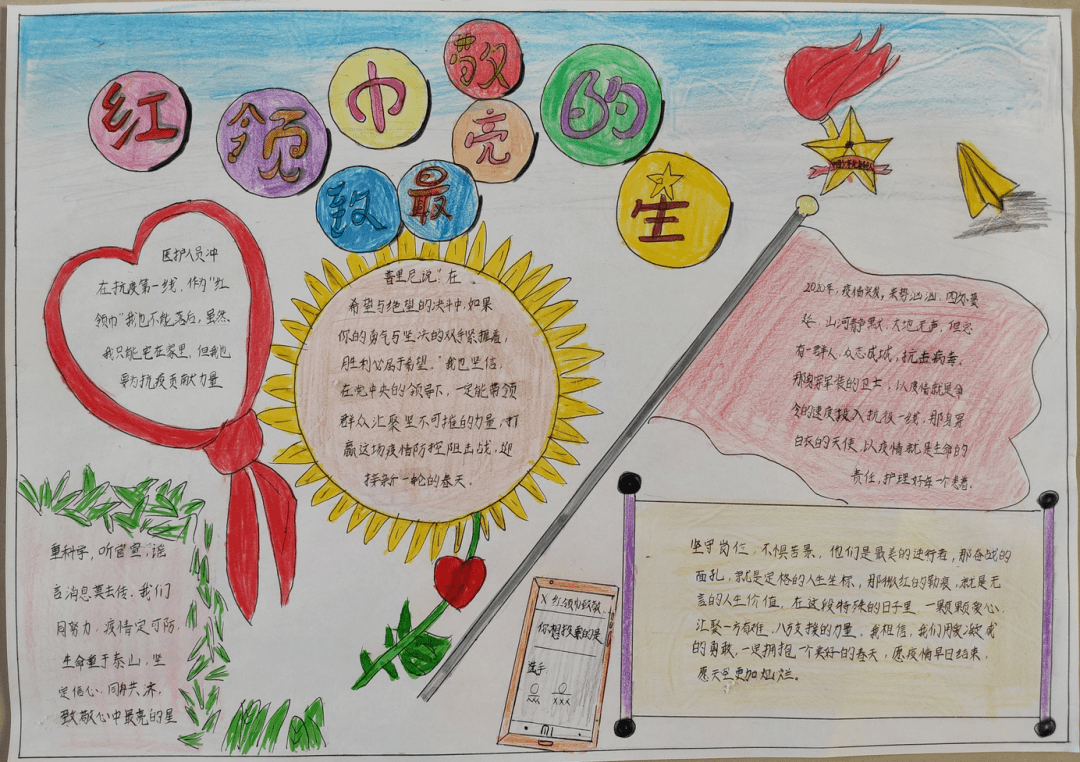 红领巾致敬最亮的星
医护人员冲
在抗疫第一线,作为"红
领巾"我也不能落后,虽然
我只能宅在家里,但我也
要为抗疫贡献力量
普里尼说:"在
希望与绝望的决斗中,如果
你的勇气与坚决的双手紧握着,
胜利必属于希望。"我也坚信,
在党中央的领导下,一定能带领
群众汇聚坚不可摧的力量,打
赢这场疫情防控阻击战,迎
接新一轮的春天。
2020年,疫情突发,来势汹汹,因为要
山河静默,大地无声,但总
有一群人,众志成城,抗击病毒。
那身穿军装的卫士,以疫情就是命
令的速度投入抗疫一线,那身穿
白衣的天使,以疫情就是生命的
责任,护理好每一个患者。
重科学,听官宣,谣
言消息莫去传。我们
同努力,疫情定可防。
生命重于泰山,坚
定信心,同舟共济,
致敬心中最亮的星
X 红领巾致敬...
你想致敬的是
选手
XXX XXX
mi
坚守岗位,不惧苦累,他们是最美的逆行者,那奋战的
面孔,就是定格的人生坐标,那微红的勒痕,就是无
言的人生价值,在这段特殊的日子里,一颗颗爱心,
汇聚一方有难,八方支援的力量,我相信,我们用爱激成
的勇敢,一定拥抱一个美好的春天,愿疫情早日结束,
愿天空更加灿烂。